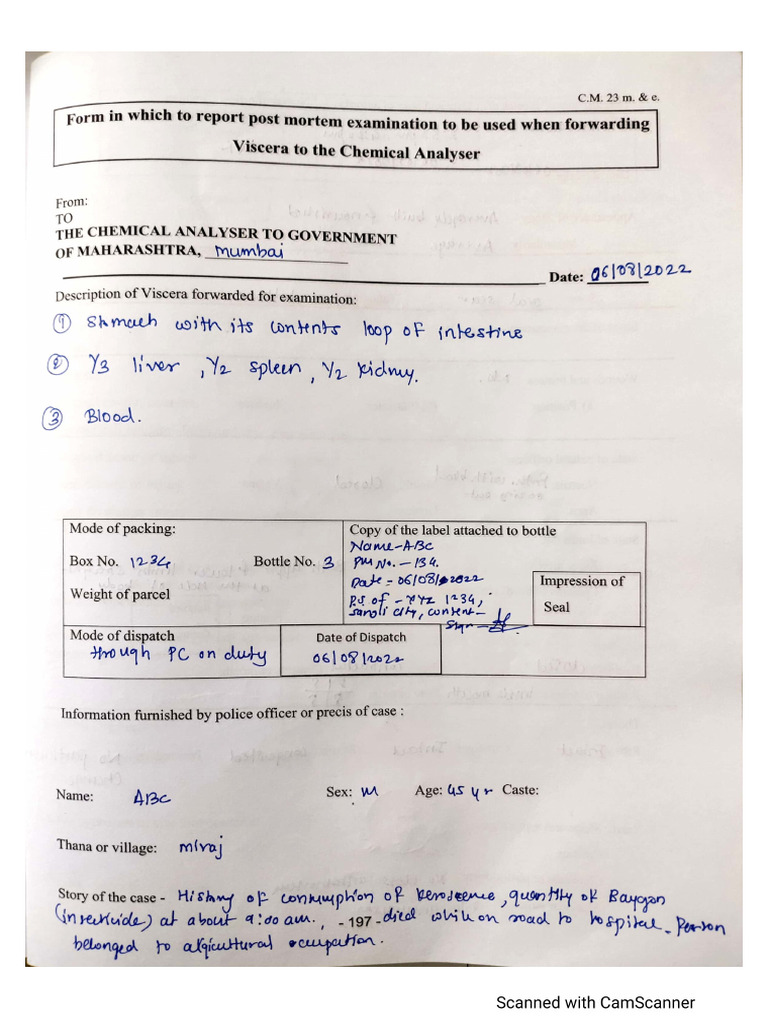 C.M. 23 m. & e.
Form in which to report post mortem examination to be used when forwarding
Viscera to the Chemical Analyser
From:
TO
THE CHEMICAL ANALYSER TO GOVERNMENT
OF MAHARASHTRA, Mumbai
Date: 06/08/2022
Description of Viscera forwarded for examination:
① Stomach with its contents loop of intestine
② 1/3 liver, 1/2 spleen, 1/2 kidney.
③ Blood.
Mode of packing:
Box No. 1234 Bottle No. 3
Weight of parcel
Copy of the label attached to bottle
Name-ABC
PM No. - 134.
Date - 06/08/2022
P.S of - XYZ 1234,
sangli city, content-
Sign -
Impression of
Seal
Mode of dispatch
through PC on duty
Date of Dispatch
06/08/2022
Information furnished by police officer or precis of case :
Name: ABC Sex: M Age: 45 yr Caste:
Thana or village: miraj
Story of the case - History of consumption of kerosene, quantity of Baygon
(insecticide) at about 9:00 am., - 197 - died while on road to hospital. Person
belonged to algicultural occupation.
Scanned with CamScanner